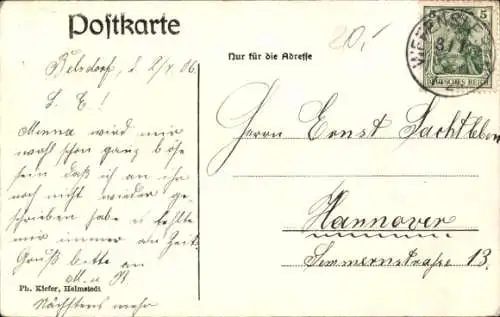 Postkarte
Nur für die Adresse
20,-
5
DEUTSCHES REICH
Belsdorf, d. 2/7 06.
L. E!
Minna wird mir
wohl schon ganz böse
sein daß ich an ihr
noch nicht wieder ge-
schrieben habe es fehlte
mir immer an Zeit.
Gruß bitte an
M. u
Nächstens mehr
Ph. Kiefer, Helmstedt
Herrn Ernst Sachtleben
Hannover
Semmernstraße 13.